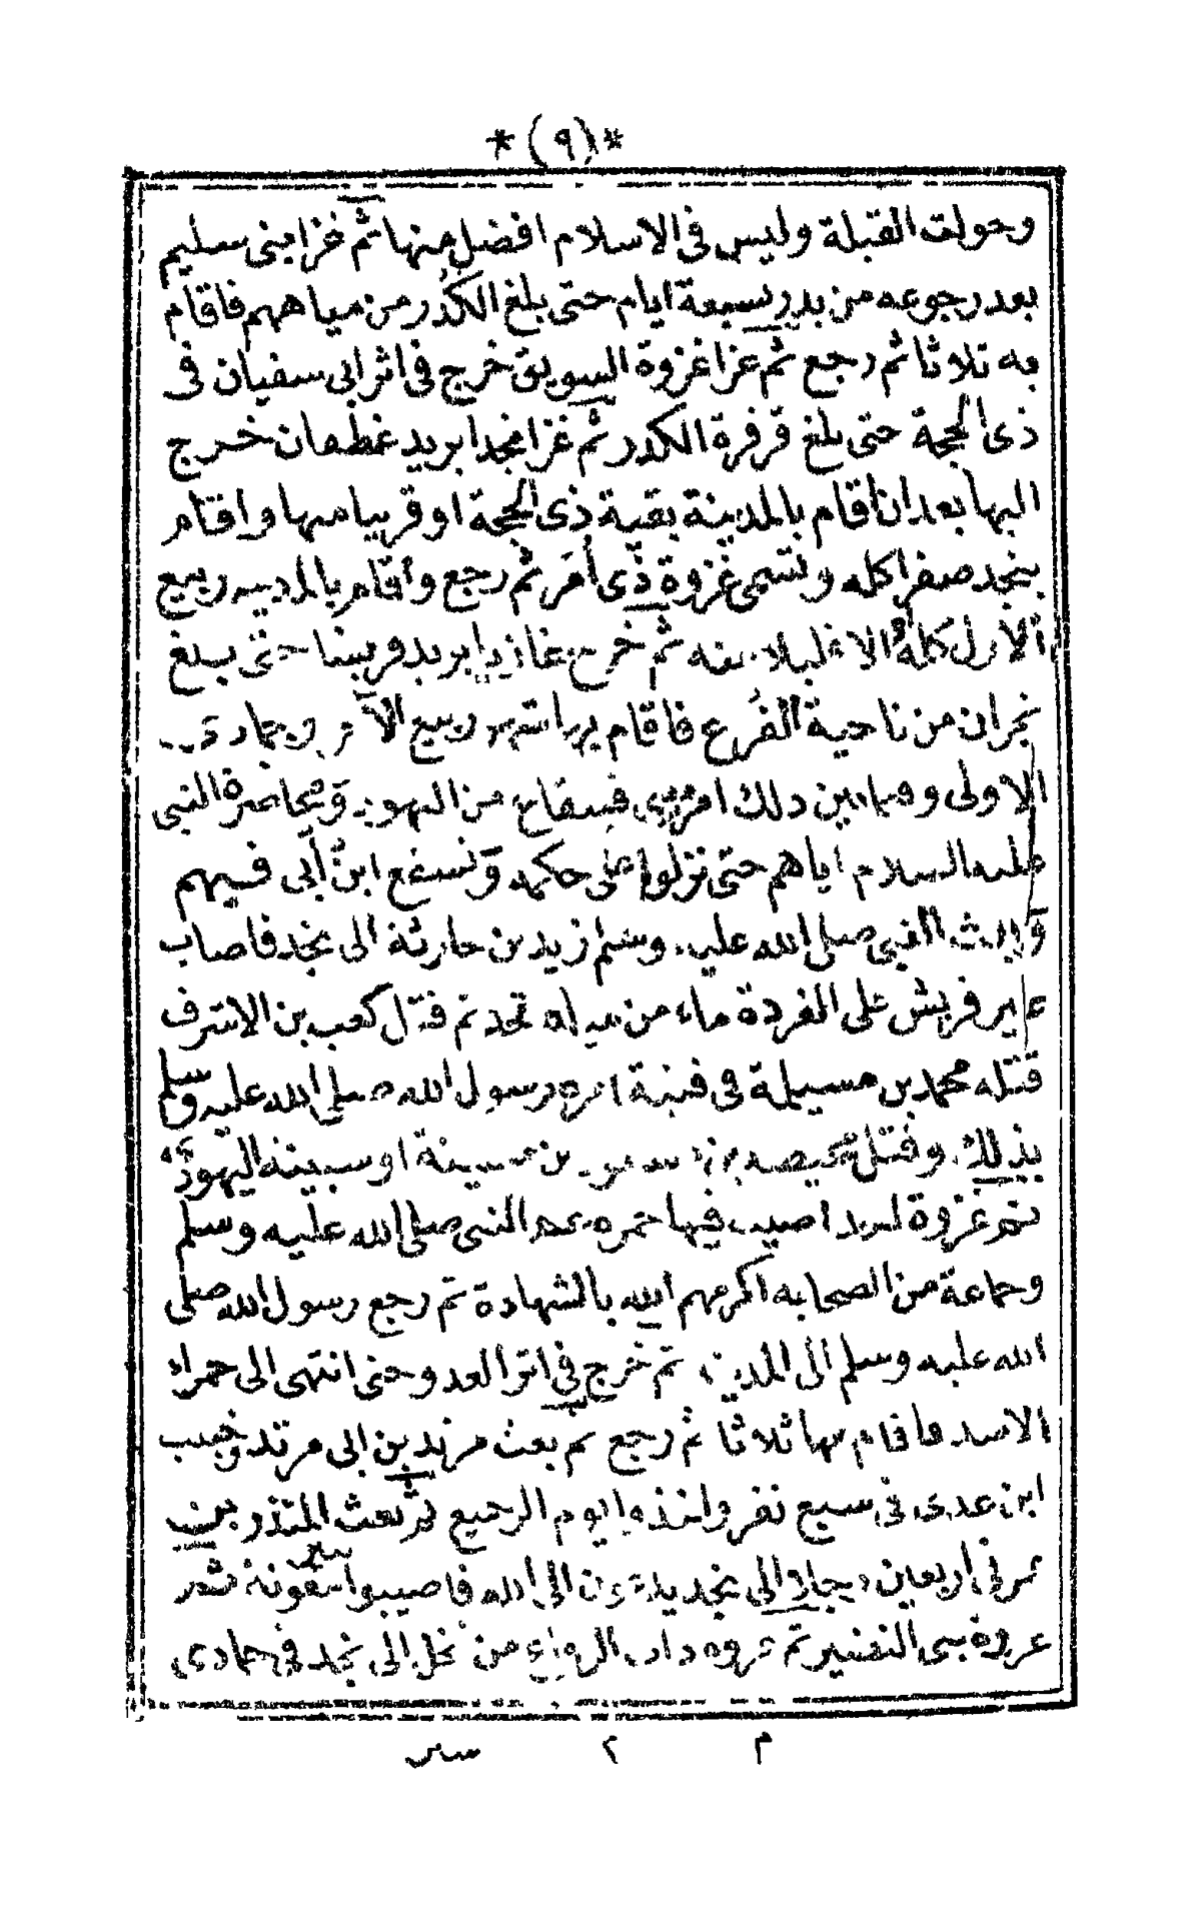 *(٩)*
وحولت القبلة وليس فى الاسلام افضل منها ثم غزا بنى سليم
بعد رجوعه من بدر بسبعة ايام حتى بلغ الكُدر من مياههم فاقام
به ثلاثا ثم رجع ثم غزا غزوة السويق خرج فى اثر ابى سفيان فى
ذى الحجة حتى بلغ قرقرة الكدر ثم غزا نجدا يريد غطفان خرج
اليها بعد ان اقام بالمدينة بقية ذى الحجة او قريبا منها واقام
بنجد صفرا كله وتسمى غزوة ذى أمَر ثم رجع واقام بالمدينه ربيع
الأول كلَّهُ الا قليلا منه ثم خرج غازيا يريد قريشا حتى بلغ
نجران من ناحية الفُرع فاقام بها شهر ربيع الآخر وجمادى
الاولى وفيما بين ذلك امر بنى قينقاع من اليهود وَمحاصرة النبى
عليه السلام اياهم حتى نزلوا على حكمه وَتشفع ابنُ أبى فيهم
وَبعث النبى صلى الله عليه وسلم زيد بن حارثة الى نجد فاصاب
عير قريش على الفردة ماء من مياه نجد ثم قتل كعب بن الاشرف
قتله محمد بن مسيلمة فى فتية امره رسول الله صلى الله عليه وسلم
بذلك وقتل محيصه بن سنينة او سبينه اليهودَّى
ثم غزوة احد اصيب فيها حمزه عم النبى صلى الله عليه وسلم
وجماعة من الصحابه اكرمهم الله بالشهادة ثم رجع رسول الله صلى
الله عليه وسلم الى المدينه ثم خرج فى اثر العدو حتى انتهى الى حمراء
الاسد فاقام بها ثلاثا ثم رجع ثم بعث مرثد بن ابى مرثد وخبيب
ابن عدى فى سبع نفر واخذوا يوم الرجيع ثم بعث المنذر بن
عمر فى اربعين رجلا الى نجد يدعون الى الله فاصيبوا
عروة بنى النضير ثم غزوه ذات الرقاع من نخل الى نجد فى جمادى
م ٢